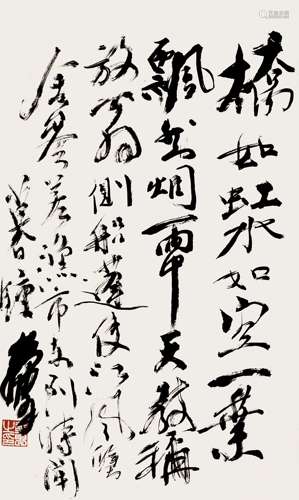 橋如虹水如空一葉
飄然烟雨中天教稱
放翁側船蓬使江風蟹
舍參差漁市東到時聞
暮鐘